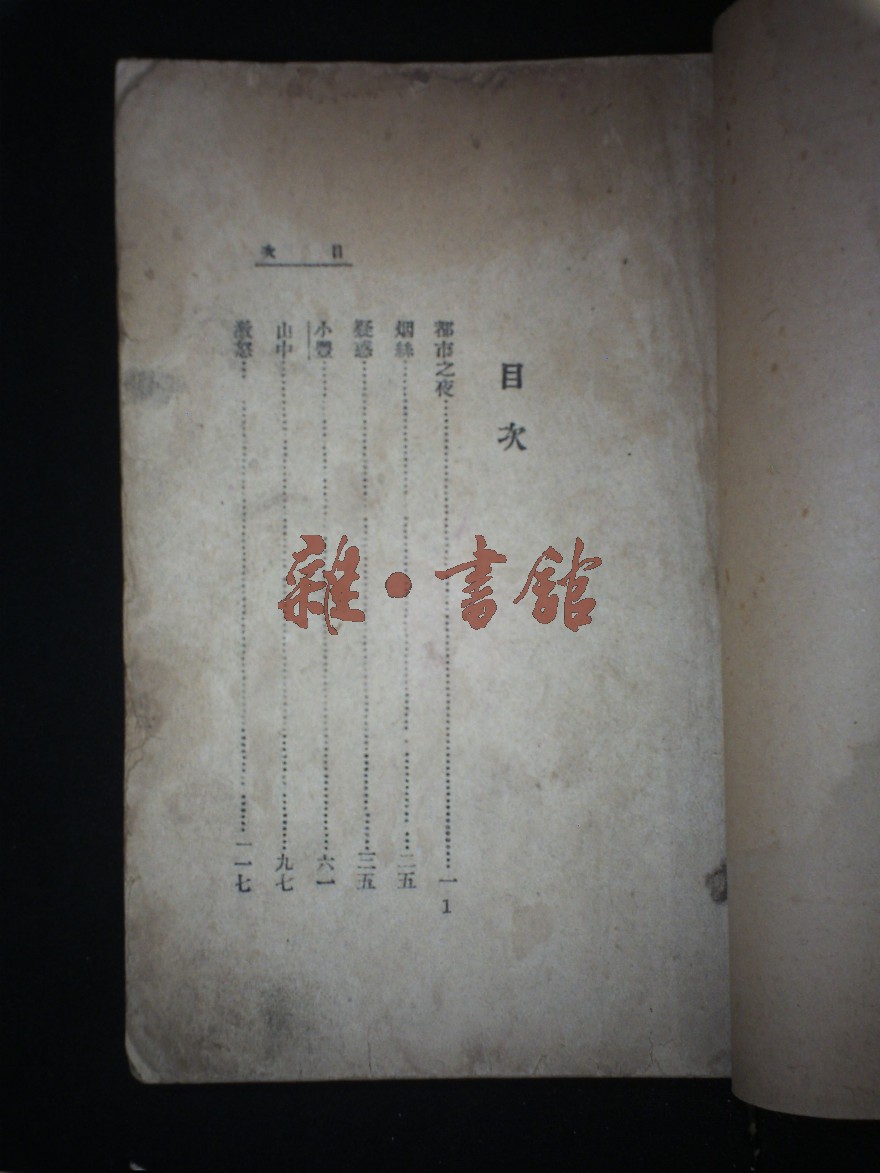 目次
目次
都市之夜……一
烟絲……二五
疑惑……三五
小豐……六一
山中……九七
激怒……一一七
1
雜•書館